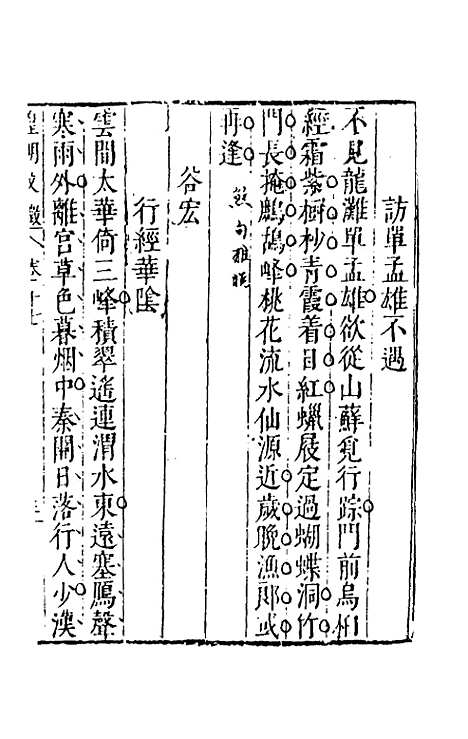 訪單孟雄不遇
不見龍灘單孟雄欲從山蘇覓行踪門前烏桕
經霜紫樹杪青霞着日紅蠟屐定過蝴蝶洞竹
門長掩鷓鴣峰桃花流水仙源近歲晚漁郎或
再逢
谷宏
行經華陰
雲間太華倚三峰積翠遙連渭水東遠塞鴈聲
寒雨外離宮草色暮烟中秦關日落行人少漢
皇明文徵 卷二十七